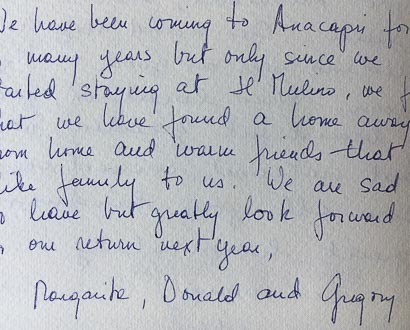 We have been coming to Anacapri for
many years but only since we
started staying at Il Mulino, we f
that we have found a home away
from home and warm friends that
like family to us. We are sad
to leave but greatly look forward
to our return next year,
Margarita, Donald and Gregory